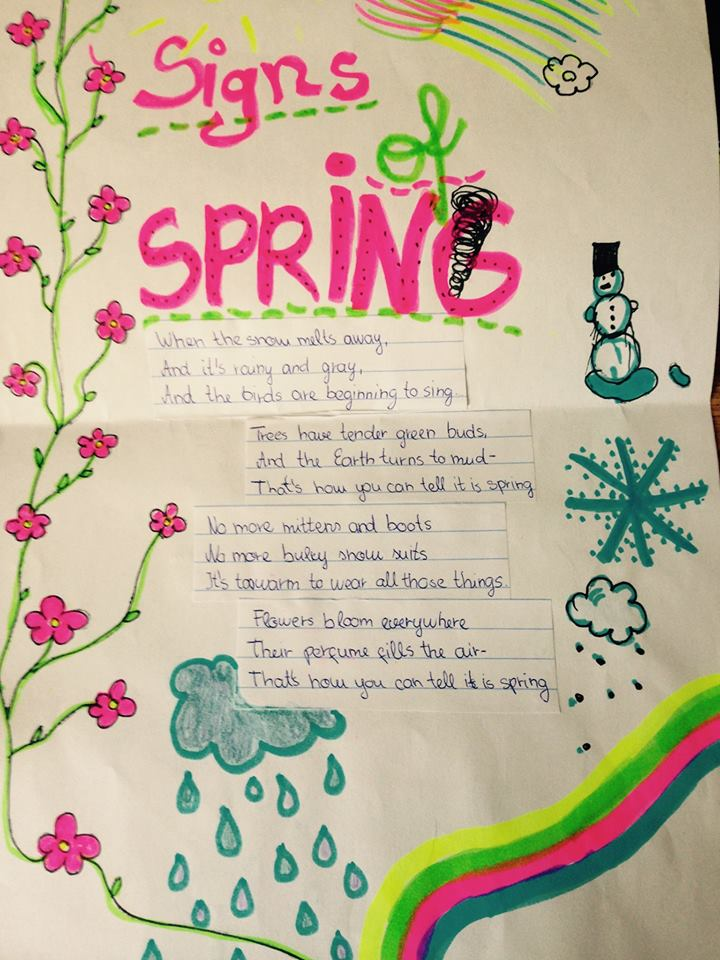 Signs
of
SPRING
When the snow melts away,
And it's rainy and gray,
And the birds are beginning to sing.
Trees have tender green buds,
And the Earth turns to mud-
That's how you can tell it is spring
No more mittens and boots
No more bulky snow suits
It's too warm to wear all those things.
Flowers bloom everywhere
Their perfume fills the air-
That's how you can tell it is spring